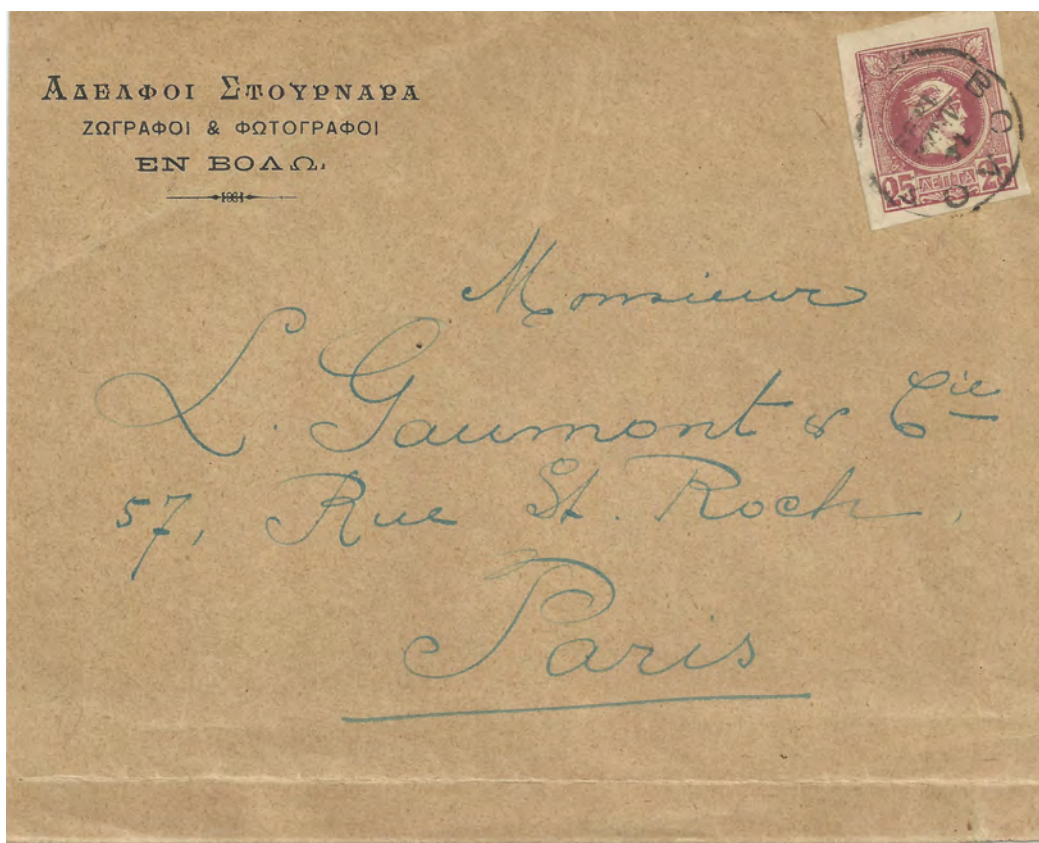 ΑΔΕΛΦΟΙ ΣΤΟΥΡΝΑΡΑ
ΖΩΓΡΑΦΟΙ & ΦΩΤΟΓΡΑΦΟΙ
ΕΝ ΒΟΛΩ.
25 ΛΕΠΤΑ 25
Monsieur
L. Gaumont & Cie
57, Rue St. Roch,
Paris